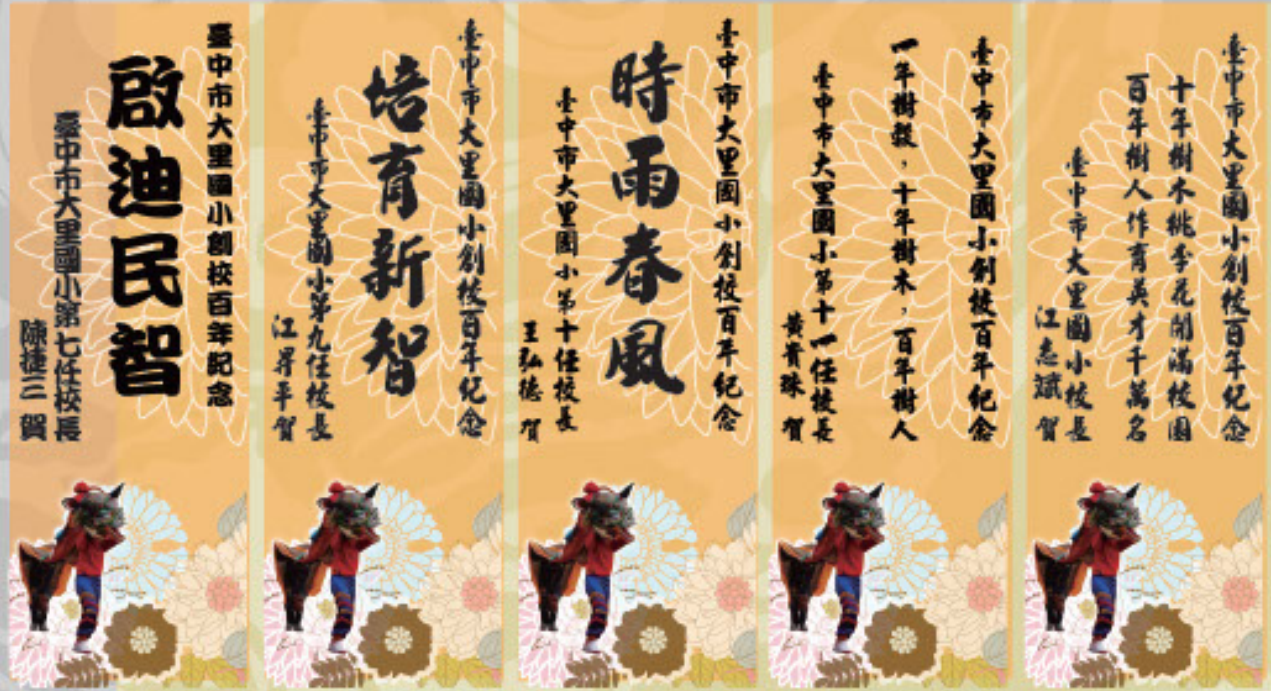 臺中市大里國小創校百年記念
啟迪民智
臺中市大里國小第七任校長
陳捷三 賀
臺中市大里國小創校百年紀念
培育新智
臺中市大里國小第九任校長
江昇平 賀
臺中市大里國小創校百年紀念
時雨春風
臺中市大里國小第十任校長
王弘德 賀
臺中市大里國小創校百年紀念
一年樹穀，十年樹木，百年樹人
臺中市大里國小第十一任校長
黃貴珠 賀
臺中市大里國小創校百年紀念
十年樹木桃李花開滿校園
百年樹人作育英才千萬名
臺中市大里國小校長
江志斌 賀